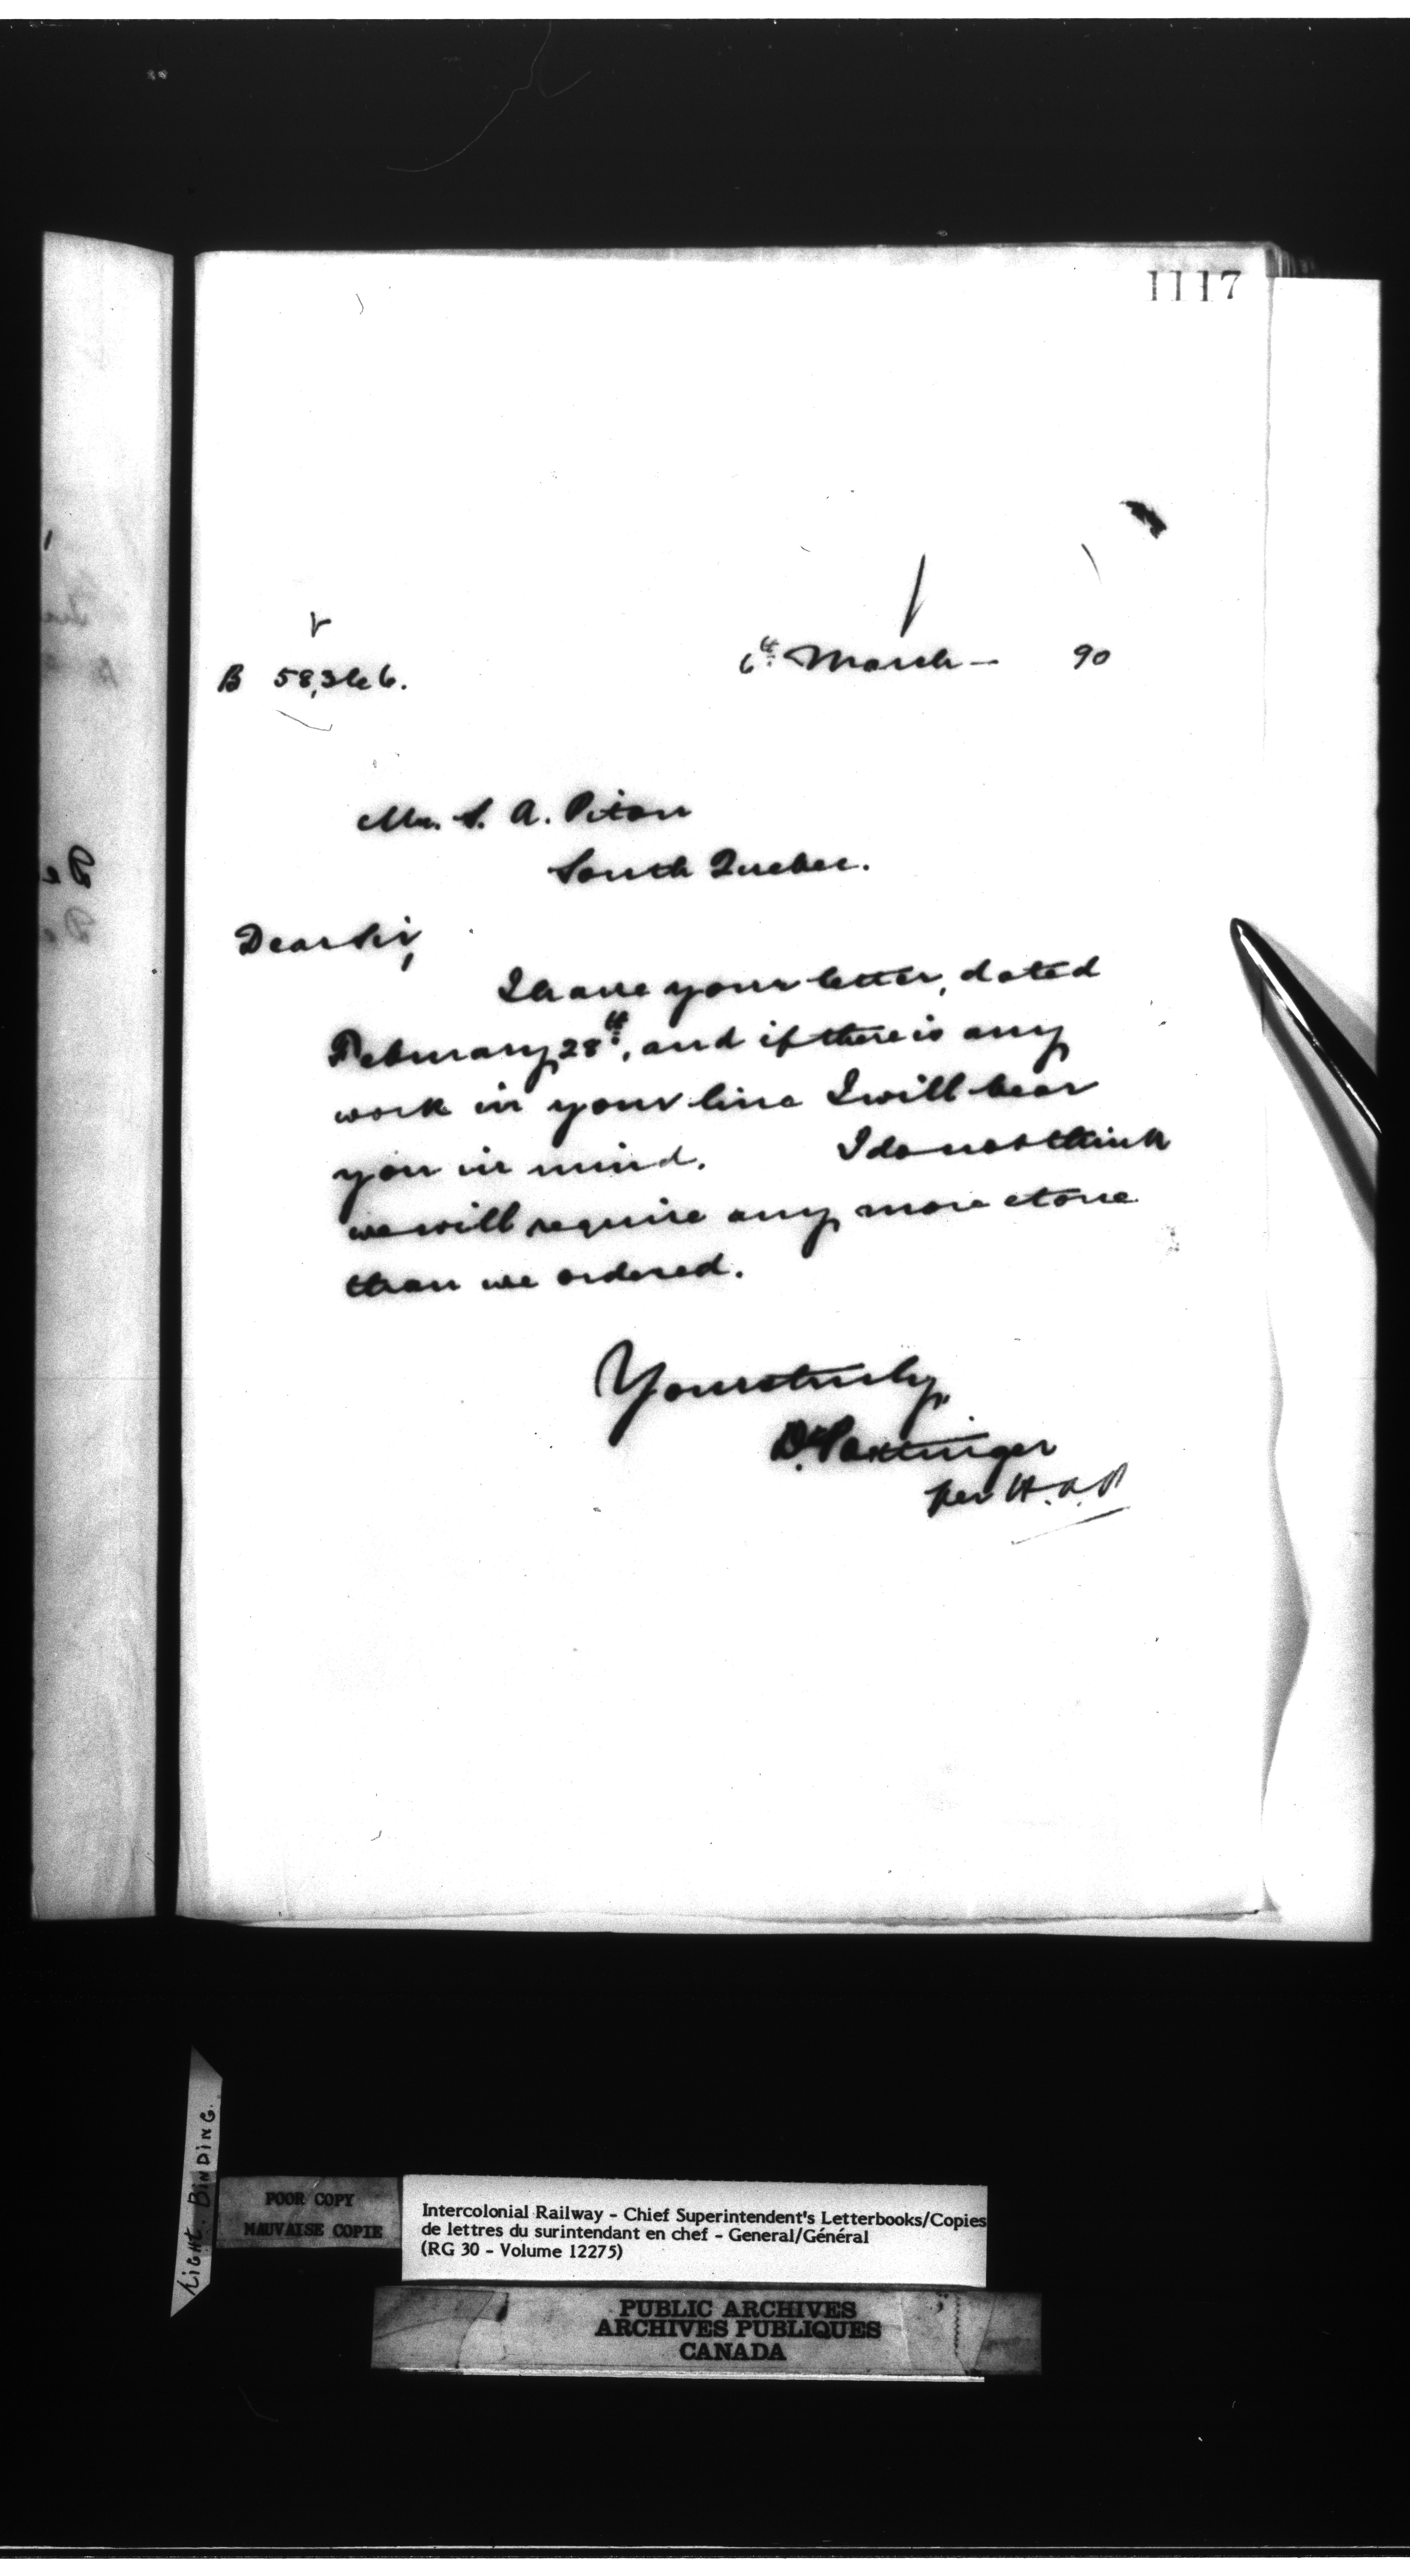 1117
B 58,366.
6th March — 90
Mr. S. A. Piton
South Quebec.
Dear Sir,
I have your letter, dated
February 28th, and if there is any
work in your line I will bear
you in mind. I do not think
we will require any more stone
than we ordered.
Yours truly,
D. Pottinger
per H.A.P
TIGHT BINDING.
POOR COPY
MAUVAISE COPIE
Intercolonial Railway - Chief Superintendent's Letterbooks/Copies
de lettres du surintendant en chef - General/Général
(RG 30 - Volume 12275)
PUBLIC ARCHIVES
ARCHIVES PUBLIQUES
CANADA